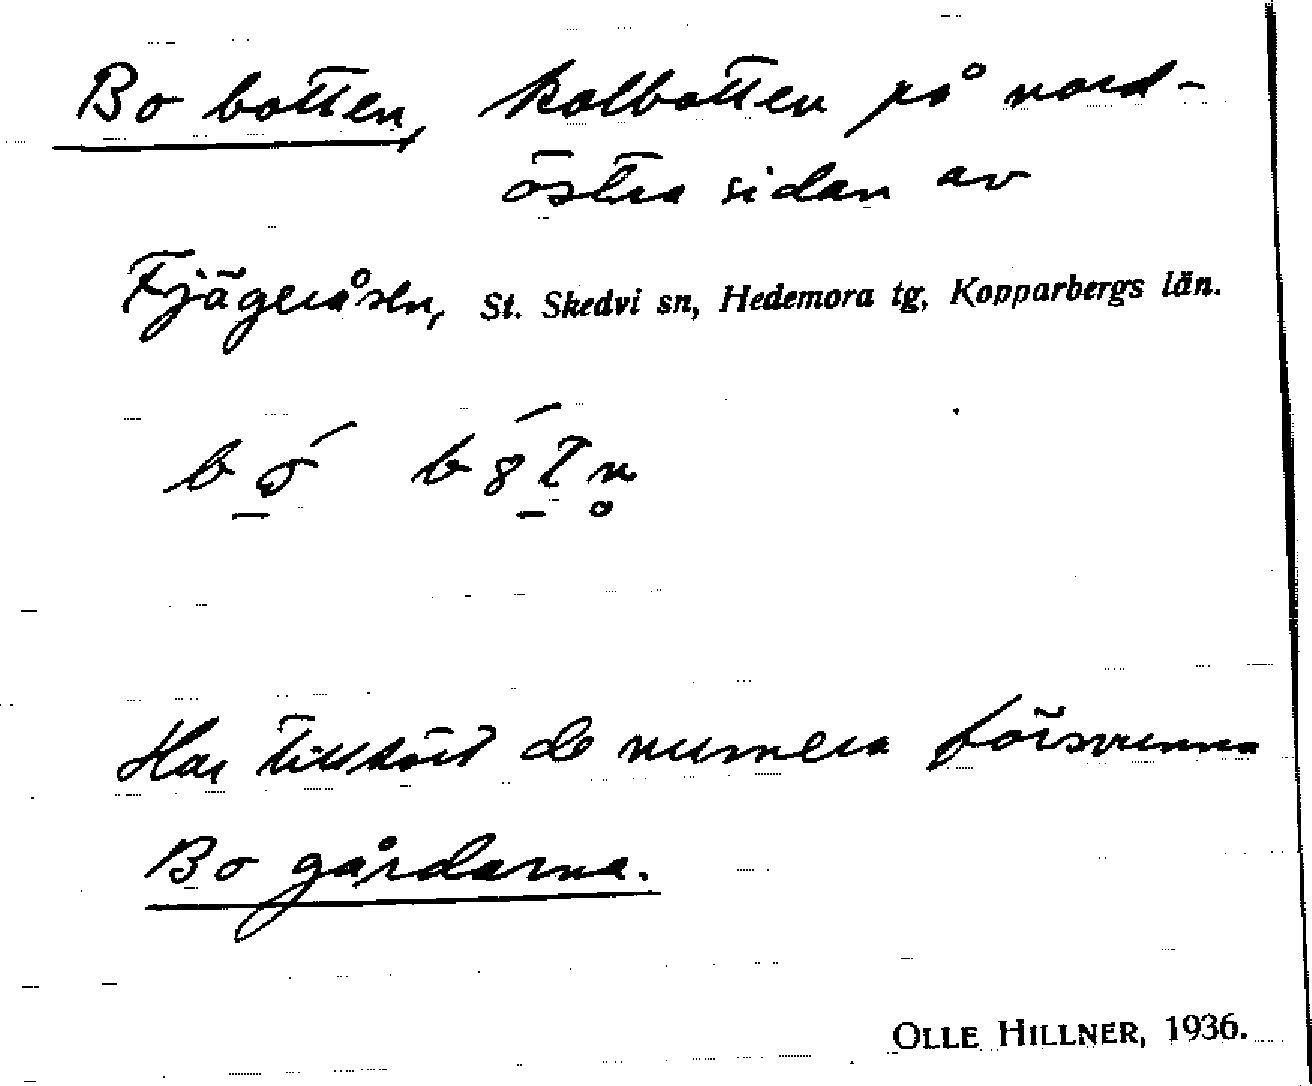 Bo botten, kolbotten på nord-
östra sidan av
Fjägeråsen, St. Skedvi sn, Hedemora tg, Kopparbergs län.
Har tillhört de numera försvunna
Bo gårdarna.
OLLE HILLNER, 1936.